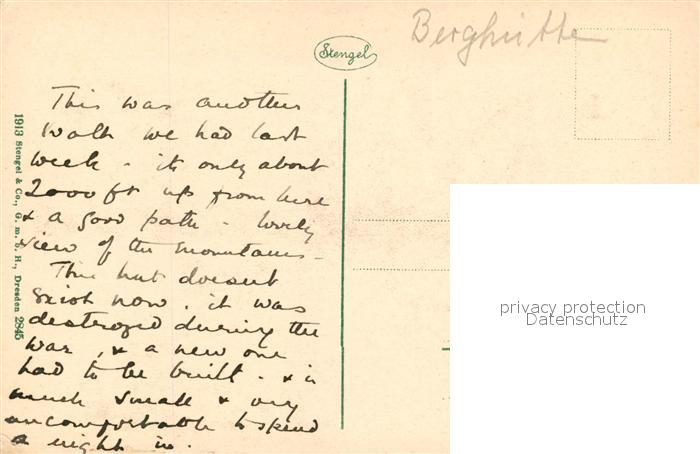 Berghütte
Stengel
This was another
walk we had last
week - its only about
2000 ft up from here
& a good path - lovely
view of the mountains -
This hut doesent
exist now. it was
destroyed during the
war, & a new one
had to be built - & is
much small & very
uncomfortable to spend
a night in.
1913 Stengel & Co., G. m. b. H., Dresden 2845
privacy protection
Datenschutz